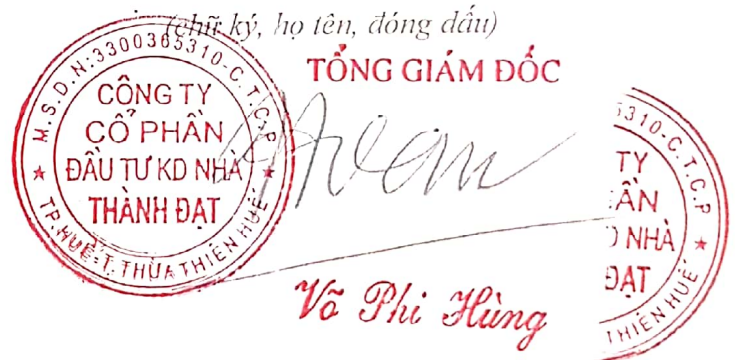 (chữ ký, họ tên, đóng dấu)
TỔNG GIÁM ĐỐC
M.S.D.N:3300365310-C.T.C.P
CÔNG TY
CỔ PHẦN
ĐẦU TƯ KD NHÀ
THÀNH ĐẠT
TP.HUẾ-T.THỪA THIÊN HUẾ
Võ Phi Hùng
5310-C.T.C.P
TY
ẦN
NHÀ
ĐẠT
THIÊN HUẾ